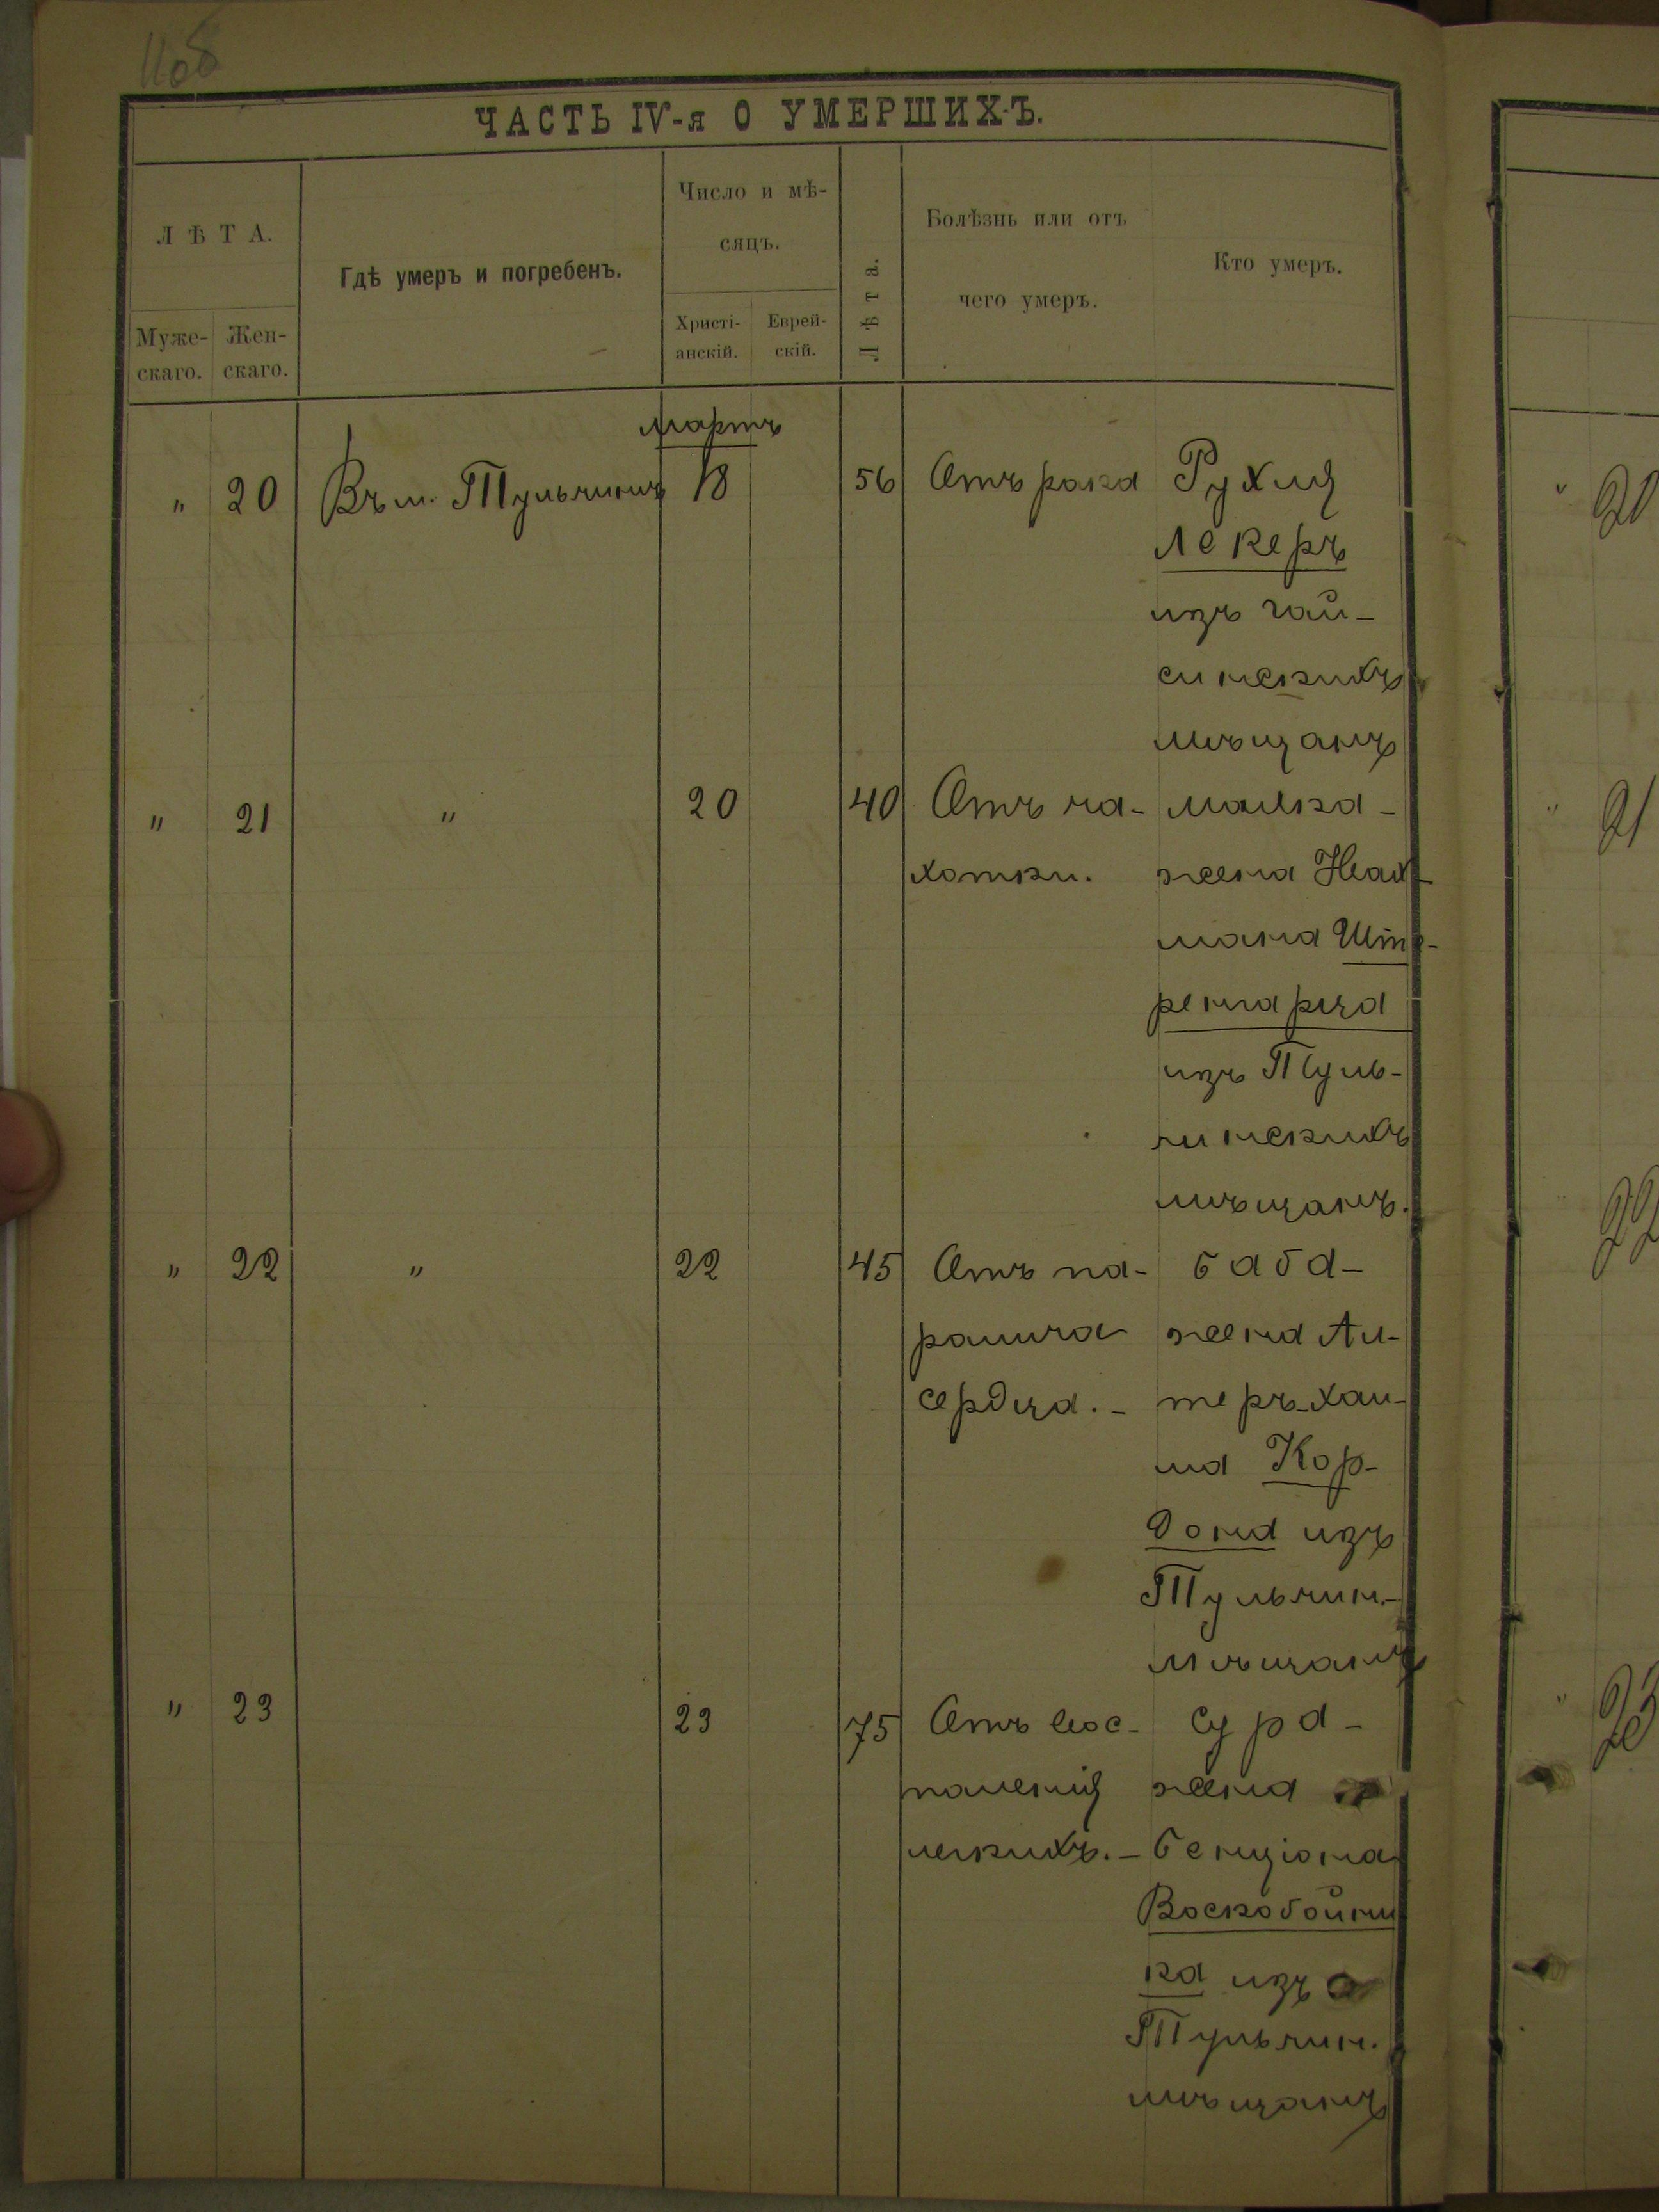 1108
ЧАСТЬ IV-я О УМЕРШИХЪ.
ЛѢТА.
Муже-
скаго.
Жен-
скаго.
Гдѣ умеръ и погребенъ.
Число и мѣ-
сяцъ.
Христі-
анскій.
Еврей-
скій.
Лѣта.
Болѣзнь или отъ
чего умеръ.
Кто умеръ.
мартъ
" 20 Въ м. Тульчинѣ 18 56 Отъ рака Рухля
Лекеръ
изъ гай-
синскихъ
мѣщанъ
" 21 " 20 40 Отъ ча- малка-
хотки. жена Нах-
манаШте-
ренгарца
изъ Туль-
чинскихъ
мѣщанъ.
" 22 " 22 45 Отъ па- баба-
ралича жена Ал-
сердца.- теръ-хаи-
ма Кор-
дона изъ
Тульчин.-
мѣщанъ
" 23 23 75 Отъ вос- сура-
паленія жена
легкихъ.- бенціона
Воскобойни
ка изъ
Тульчин.
мѣщанъ
" 20
" 21
" 22
" 23